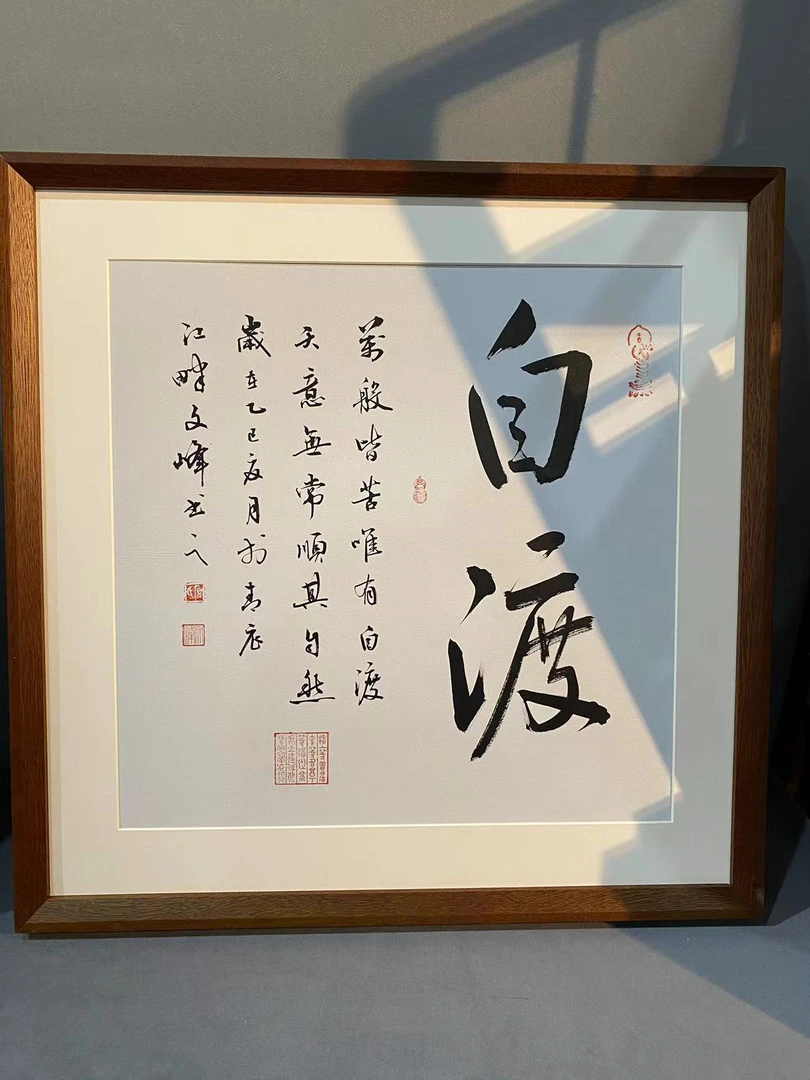 自渡
萬般皆苦唯有自渡
天意無常順其自然
歲在乙巳夏月於青
江畔文峰书之